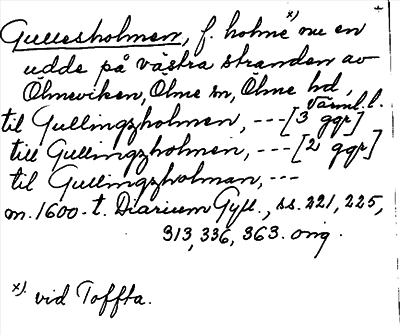 Gullesholmen, f. holme x) nu en
udde på västra stranden av
Ölmeviken, Ölme sn, Ölme hd,
Värml. l.
til Gullingzholmen, --- [3 ggr]
till Gullingzholmen, --- [2 ggr]
til Gullingzholman, ---
m. 1600-t. Diarium Gyll., ss. 221, 225,
313, 336, 363. orig.
x) vid Toffta.